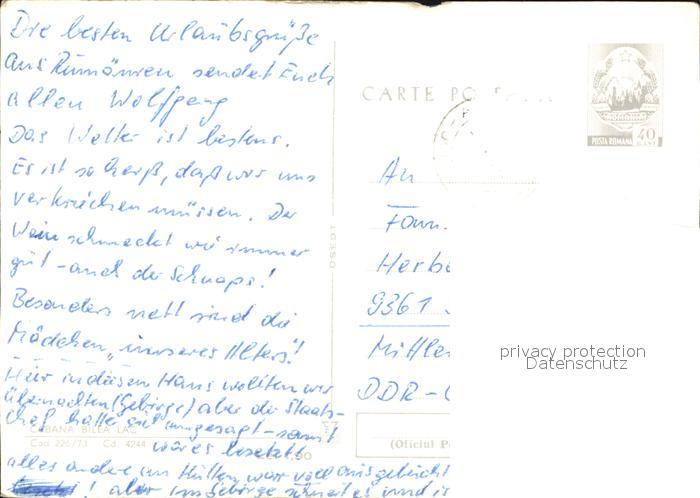 Die besten Urlaubsgrüße
aus Rumänien sendet Euch
allen Wolfgang
Das Wetter ist bestens.
Es ist so heiß, daß wir uns
verkriechen müssen. Der
Wein schmeckt wie immer
gut - auch der Schnaps!
Besonders nett sind die
Mädchen „unseres Alters"!
Hier in diesem Haus wollten wir
übernachten (Gebirge) aber die Staats-
chef hatte sich angesagt - somit
wäres besetzt
CABANA BILEA LAC
Cod 226/73 Cd. 4244
alles andere im Hütten war voll ausgebucht
! aber im Gebirge schneit es und is
CARTE PO
POSTA ROMANA 40 BANI
An
Fam.
Herbe
9361
Mittle
DDR -
(Oficiul P
privacy protection
Datenschutz